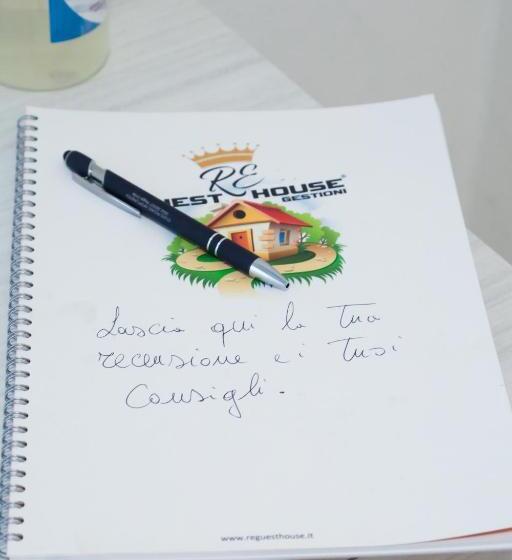 RE
UEST HOUSE®
GESTIONI
Lascia qui la tua
recensione e i tuoi
Consigli.
www.reguesthouse.it